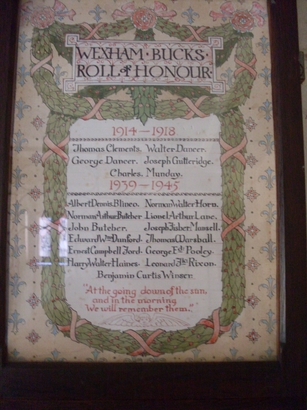 WEXHAM · BUCKS ·
ROLL of HONOUR
1914 — 1918
Thomas Clements. Walter Dancer.
George Dancer. Joseph Gutteridge.
Charles. Munday.
1939 — 1945
Albert Dennis Blinco. Norman Walter Horn.
Norman Arthur Butcher Lionel Arthur Lane.
John Butcher. Joseph Mansell.
Edward Wm Danford. Thomas Marshall.
Ernest Campbell Ford. George Ed. Pooley.
Harry Walter Haines. Leonard Rixon.
Benjamin Curtis Winser.
"At the going down of the sun,
and in the morning
We will remember them."